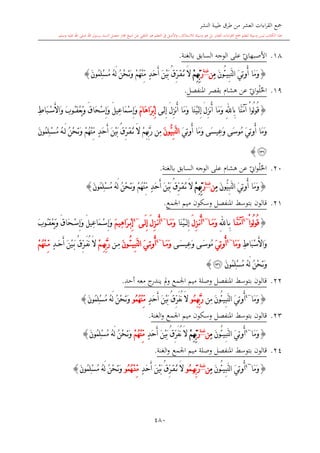 جمع القراءات العشر من طرق طيبة النشر
١٨. الأصبهانيّ على الوجه السابق بالغنة.
﴿ وَمَا أُوتِيَ النَّبِيُّونَ مِن رَّبِّهِمْ لَا نُفَرِّقُ بَيْنَ أَحَدٍ مِّنْهُمْ وَنَحْنُ لَهُ مُسْلِمُونَ ﴾
١٩. الحُلْوَانِيّ عن هشام بقصر المنفصل.
﴿ قُولُوا آمَنَّا بِاللَّهِ وَمَا أُنزِلَ إِلَيْنَا وَمَا أُنزِلَ إِلَى إِبْرَاهَامَ وَإِسْمَاعِيلَ وَإِسْحَاقَ وَيَعْقُوبَ وَالْأَسْبَاطِ
وَمَا أُوتِيَ مُوسَى وَعِيسَى وَمَا أُوتِيَ النَّبِيُّونَ مِن رَّبِّهِمْ لَا نُفَرِّقُ بَيْنَ أَحَدٍ مِّنْهُمْ وَنَحْنُ لَهُ مُسْلِمُونَ
﴾
٢٠. الحُلْوَانِيّ عن هشام على الوجه السابق بالغنة.
﴿ وَمَا أُوتِيَ النَّبِيُّونَ مِن رَّبِّهِمْ لَا نُفَرِّقُ بَيْنَ أَحَدٍ مِّنْهُمْ وَنَحْنُ لَهُ مُسْلِمُونَ ﴾
٢١. قالون بتوسط المنفصل وسكون ميم الجمع.
﴿ قُولُوا آمَنَّا بِاللَّهِ وَمَا أُنزِلَ إِلَيْنَا وَمَا أُنزِلَ إِلَى إِبْرَاهِيمَ وَإِسْمَاعِيلَ وَإِسْحَاقَ وَيَعْقُوبَ
وَالْأَسْبَاطِ وَمَا أُوتِيَ مُوسَى وَعِيسَى وَمَا أُوتِيَ النَّبِيُّونَ مِن رَّبِّهِمْ لَا نُفَرِّقُ بَيْنَ أَحَدٍ مِّنْهُمْ
وَنَحْنُ لَهُ مُسْلِمُونَ ﴾
٢٢. قالون بتوسط المنفصل وصلة ميم الجمع ولم يندرج معه أحد.
﴿ وَمَا أُوتِيَ النَّبِيُّونَ مِن رَّبِّهِمُو لَا نُفَرِّقُ بَيْنَ أَحَدٍ مِّنْهُمُو وَنَحْنُ لَهُ مُسْلِمُونَ ﴾
٢٣. قالون بتوسط المنفصل وسكون ميم الجمع والغنة.
﴿ وَمَا أُوتِيَ النَّبِيُّونَ مِن رَّبِّهِمْ لَا نُفَرِّقُ بَيْنَ أَحَدٍ مِّنْهُمْ وَنَحْنُ لَهُ مُسْلِمُونَ ﴾
٢٤. قالون بتوسط المنفصل وصلة ميم الجمع والغنة.
﴿ وَمَا أُوتِيَ النَّبِيُّونَ مِن رَّبِّهِمُو لَا نُفَرِّقُ بَيْنَ أَحَدٍ مِّنْهُمُو وَنَحْنُ لَهُ مُسْلِمُونَ ﴾
٤٨٠